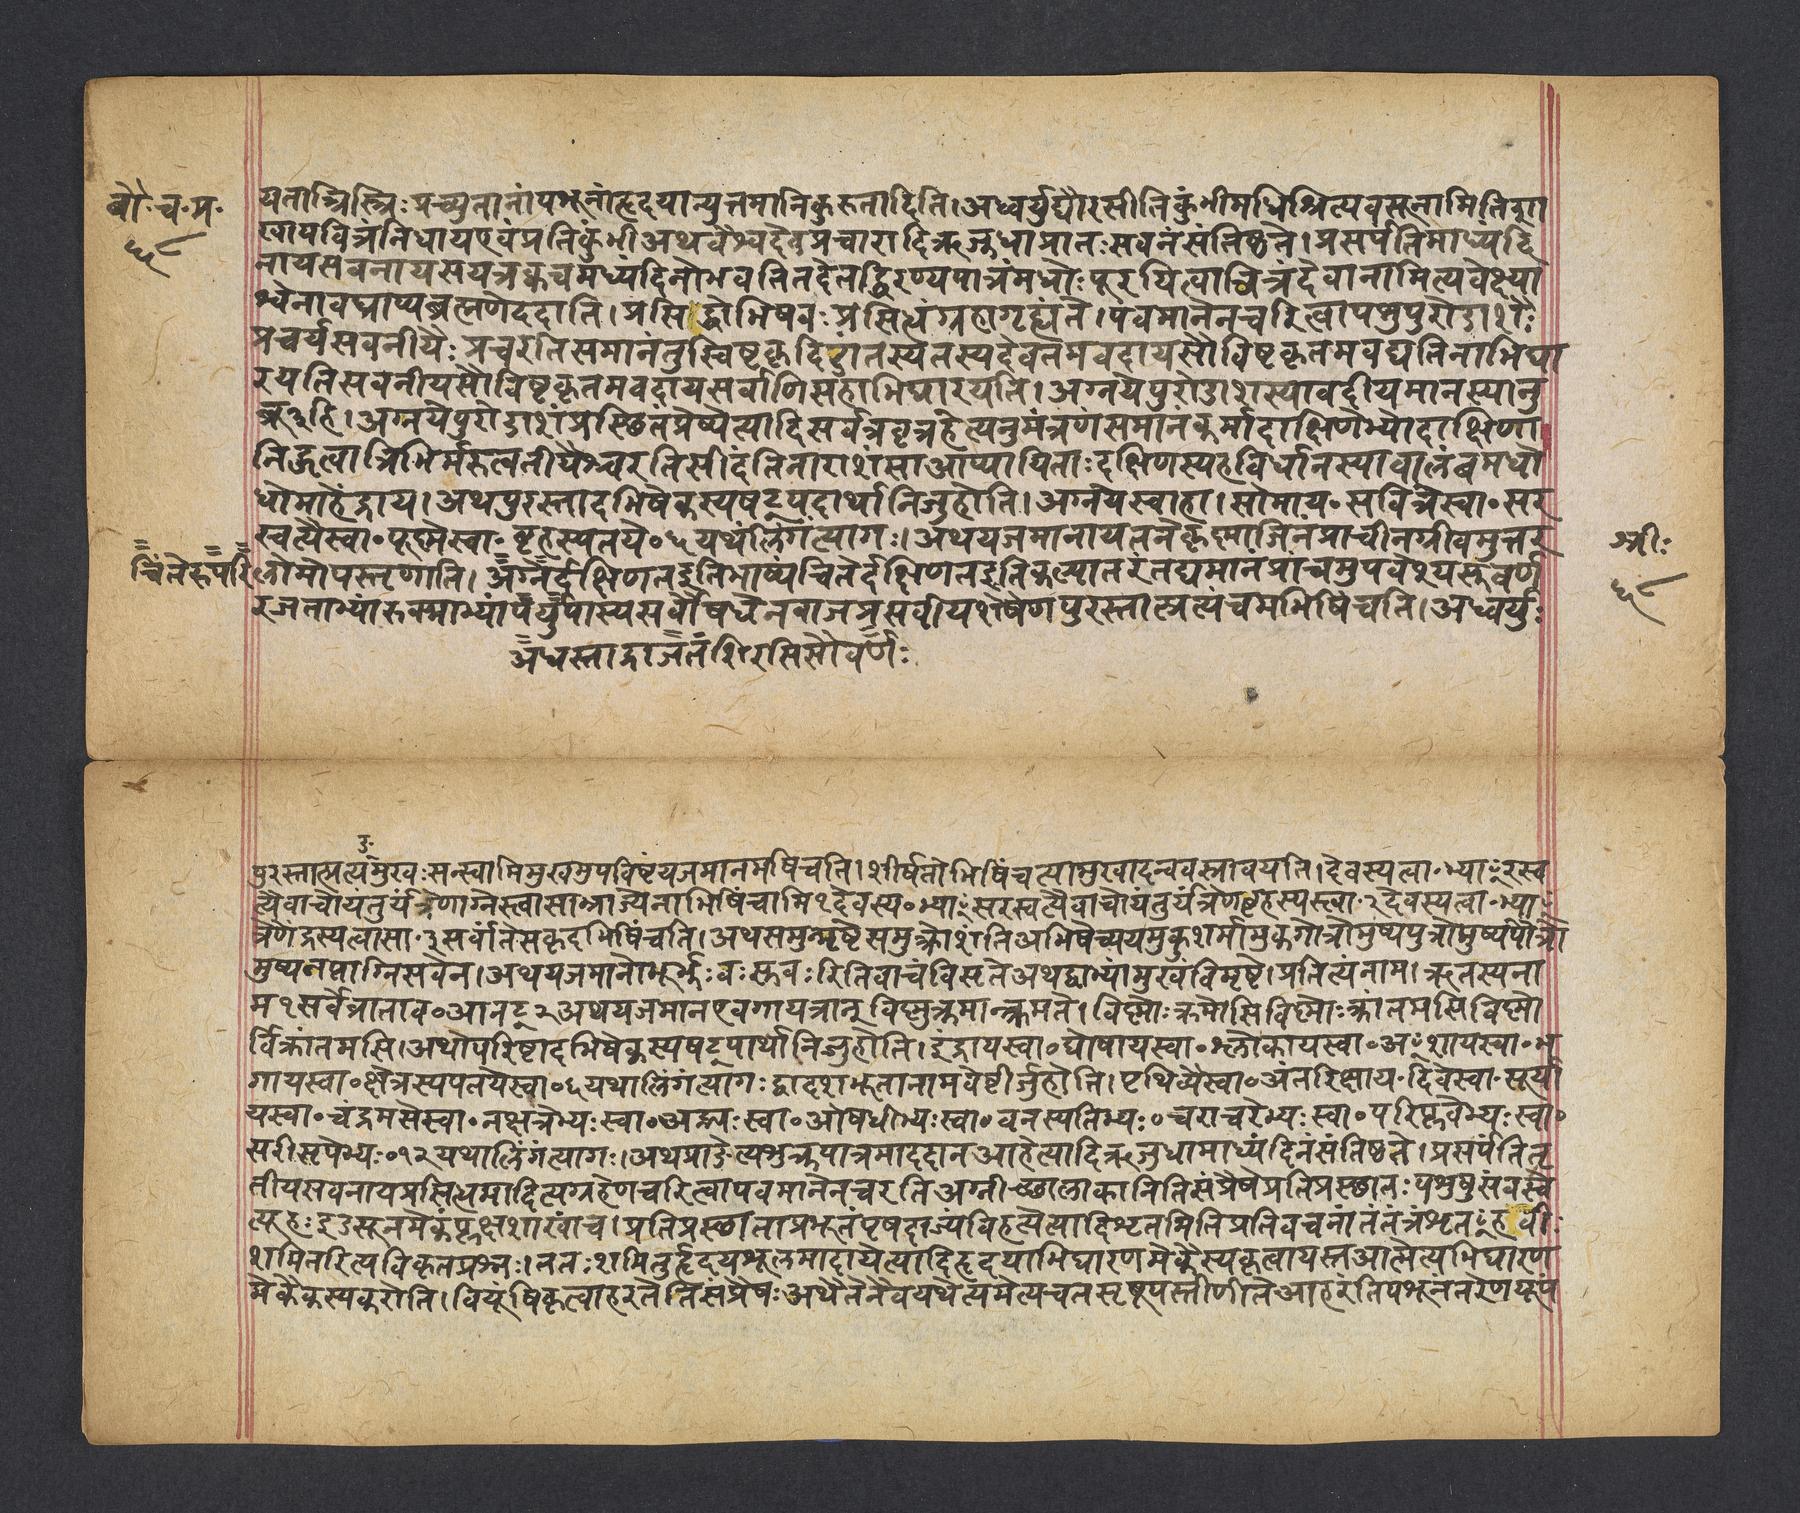 बौ॰च॰प्र॰
५८
यताच्छ्रित्रिः प्रच्युतानां पशूनां हृदयान्युत्तमानि कुरुतादिति । अध्वर्युर्द्यौरसीति कुंभीमधिश्रित्य वसूनामिति शा
खापवित्रनिधाय एवं प्रतिकुंभी अथ वैश्वदेवप्रचारादि ऋजुधा प्रातःसवनं संतिष्ठते । प्रसर्पंति माध्यंदि
नाय सवनाय स यत्र क्व च मध्यंदिनो भवति तदेतद्धिरण्यपात्रं मधोः पूरयित्वा चित्रं देवानामित्यवेक्ष्या
श्वेनावघ्राप्य ब्रह्मणे ददाति । प्रसिद्धोभिषवः प्रसिध्यं ग्रहा गृह्यंते । पवमानेन चरित्वा पशुपुरोडाशैः
प्रचर्य सवनीयैः प्रचरति समानं तु स्विष्टकृदिडातस्य तस्य दैवतमवदाय सौविष्टकृतमवद्यति नाभिघा
रयति सवनीयसौविष्टकृतमवदाय सर्वाणि सहाभिघारयति । अग्नये पुरोडाशस्यावदीयमानस्यानु
ब्रू३हि । अग्नये पुरोडाशं प्रस्थितं प्रेष्येत्यादि सर्वत्र वृत्रहेत्यनुमंत्रणं समानं कर्मादाक्षिणेभ्यो दाक्षिणा
नि हुत्वा त्रिभिर्मरुत्वतीयैश्चरति सीदंति नाराशंसा आप्यायिताः दक्षिणस्य हविर्धानस्यावालंबमधो
धो माहेंद्राय । अथ पुरस्तादभिषेकस्य षट् पदार्थानि जुहोति । अग्नये स्वाहा । सोमाय॰ सवित्रे स्वा॰ सर
स्वत्यै स्वा॰ पूष्णे स्वा॰ बृहस्पतये॰ ६ यथंलिंगं त्यागः । अथ यजमानायतने कृष्णाजिनं प्राचीनग्रीवमुत्तर
लोमोपस्तृणाति । अग्नेर्दक्षिणत इति भाष्य चितेर्दक्षिणत इति कल्पांतरं तद्यमानं प्रांचमुपवेश्य सुवर्ण
चितेरुपरि
रजताभ्यां रुक्माभ्यां पर्युपास्य सर्वौषधेन वाजप्रसवीयशेषेण पुरस्तात्प्रत्यंचमभिषिंचति । अध्वर्युः
अधस्ताद्राजतं शिरसि सौवर्णः
श्रीः
५८
पुरस्तात्प्रत्यंमुखः सन्स्वाभिमुखमुपविष्टं यजमानमषिंचति । शीर्षतोभिषिंचत्यामुखादन्ववस्रावयति । देवस्य त्वा॰ भ्याꣳ सरस्व
ङ्
त्यै वाचो यंतुर्यंत्रेणाग्नेस्त्वा साम्राज्येनाभिषिंचामि १ देवस्य॰ भ्याꣳ सरस्वत्यै वाचो यंतुर्यंत्रेण बृहस्पतेस्त्वा॰ २ देवस्य त्वा॰ भ्याꣳ
त्रेणेंद्रस्य त्वा सा॰ ३ सर्वांते सकृदभिषिंचति । अथ समुन्मृष्टे समुत्क्रोशंति अभिषेच्ययमुकुशर्मामुकगोत्रोमुष्यपुत्रोमुष्यपौत्रो
मुष्यनप्ताग्निसवेन । अथ यजमानो भूर्भुवः सुवः रिति वाचं विसृजते अथ द्वाभ्यां मुखं विमृष्टे । प्रतित्यं नाम । ऋतस्य ना
म १ सर्वे व्राता व॰ आनट् २ अथ यजमान एव गायत्रान् विष्णुक्रमान् क्रमते । विष्णोः क्रमोसि विष्णोः क्रांतमसि विष्णो
र्विक्रांतमसि । अथोपरिष्टादभिषेकस्य षट् पार्थानि जुहोति । इंद्राय स्वा॰ घोषाय स्वा॰ श्लोकाय स्वा॰ अꣳशाय स्वा॰ भ
गाय स्वा॰ क्षेत्रस्य पतये स्वा॰ ६ यथालिंगं त्यागः द्वादश भूतानामवेष्टीर्जुहोति । पृथिव्यै स्वा॰ अंतरिक्षाय॰ दिवे स्वा॰ सूर्या
य स्वा॰ चंद्रमसे स्वा॰ नक्षत्रेभ्यः स्वा॰ अद्भ्यः स्वा॰ ओषधीभ्यः स्वा॰ वनस्पतिभ्यः॰ चराचरेभ्यः स्वा॰ परिप्लवेभ्यः स्वा॰
सरीसृपेभ्यः॰ १२ यथालिंगं त्यागः । अथ प्राङेत्य शुक्रपात्रमाददान आहेत्यादि ऋजुधा माध्यंदिनं संतिष्ठते । प्रसर्पंति तृ
तीयसवनाय प्रसिध्यमादित्यग्रहेण चरित्वा पवमानेन चरति अग्नीच्छालाकानिति संप्रैष प्रतिप्रस्थातः पशुषु संवस्वे
त्यूहः इडसूनमेकं प्लक्षशाखां च । प्रतिप्रस्थाता प्रभूतं पृषदाज्यं विहृत्येत्यादि शृतमिति प्रतिवचनांतं तंत्रं शृतꣳ हवीः
शमितरित्यविकृतप्रश्नः । ततः शमितुर्हृदयशूलमादायेत्यादि हृदयाभिघारणमेकैस्य कृत्वा यस्त आत्मेत्यभिघारण
मेकैकस्य करोति । वियूंषि कृत्वा हरतेति संप्रैषः अथैतेनैव यथेत्यमेत्य चतसृषूपस्तीर्णीते आहरंति पशूनंतरेण यूपं